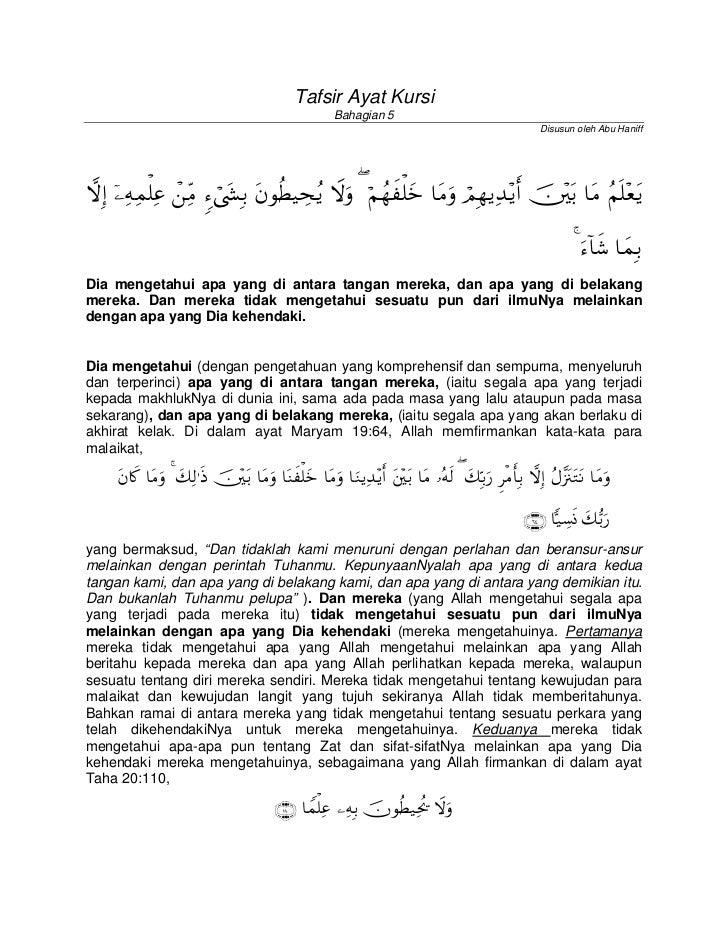 Tafsir Ayat Kursi
Bahagian 5
Disusun oleh Abu Haniff
يَعْلَمُ مَا بَيْنَ أَيْدِيهِمْ وَمَا خَلْفَهُمْ ۖ وَلَا يُحِيطُونَ بِشَيْءٍ مِّنْ عِلْمِهِۦٓ إِلَّا
بِمَا شَآءَ ۚ
Dia mengetahui apa yang di antara tangan mereka, dan apa yang di belakang
mereka. Dan mereka tidak mengetahui sesuatu pun dari ilmuNya melainkan
dengan apa yang Dia kehendaki.
Dia mengetahui (dengan pengetahuan yang komprehensif dan sempurna, menyeluruh
dan terperinci) apa yang di antara tangan mereka, (iaitu segala apa yang terjadi
kepada makhlukNya di dunia ini, sama ada pada masa yang lalu ataupun pada masa
sekarang), dan apa yang di belakang mereka, (iaitu segala apa yang akan berlaku di
akhirat kelak. Di dalam ayat Maryam 19:64, Allah memfirmankan kata-kata para
malaikat,
وَمَا نَتَنَزَّلُ إِلَّا بِأَمْرِ رَبِّكَ ۖ لَهُۥ مَا بَيْنَ أَيْدِينَا وَمَا خَلْفَنَا وَمَا بَيْنَ ذَٰلِكَ ۚ وَمَا كَانَ
رَبُّكَ نَسِيًّا ﴿٦٤﴾
yang bermaksud, “Dan tidaklah kami menuruni dengan perlahan dan beransur-ansur
melainkan dengan perintah Tuhanmu. KepunyaanNyalah apa yang di antara kedua
tangan kami, dan apa yang di belakang kami, dan apa yang di antara yang demikian itu.
Dan bukanlah Tuhanmu pelupa” ). Dan mereka (yang Allah mengetahui segala apa
yang terjadi pada mereka itu) tidak mengetahui sesuatu pun dari ilmuNya
melainkan dengan apa yang Dia kehendaki (mereka mengetahuinya. Pertamanya
mereka tidak mengetahui apa yang Allah mengetahui melainkan apa yang Allah
beritahu kepada mereka dan apa yang Allah perlihatkan kepada mereka, walaupun
sesuatu tentang diri mereka sendiri. Mereka tidak mengetahui tentang kewujudan para
malaikat dan kewujudan langit yang tujuh sekiranya Allah tidak memberitahunya.
Bahkan ramai di antara mereka yang tidak mengetahui tentang sesuatu perkara yang
telah dikehendakiNya untuk mereka mengetahuinya. Keduanya mereka tidak
mengetahui apa-apa pun tentang Zat dan sifat-sifatNya melainkan apa yang Dia
kehendaki mereka mengetahuinya, sebagaimana yang Allah firmankan di dalam ayat
Taha 20:110,
وَلَا يُحِيطُونَ بِهِۦ عِلْمًا ﴿١١٠﴾